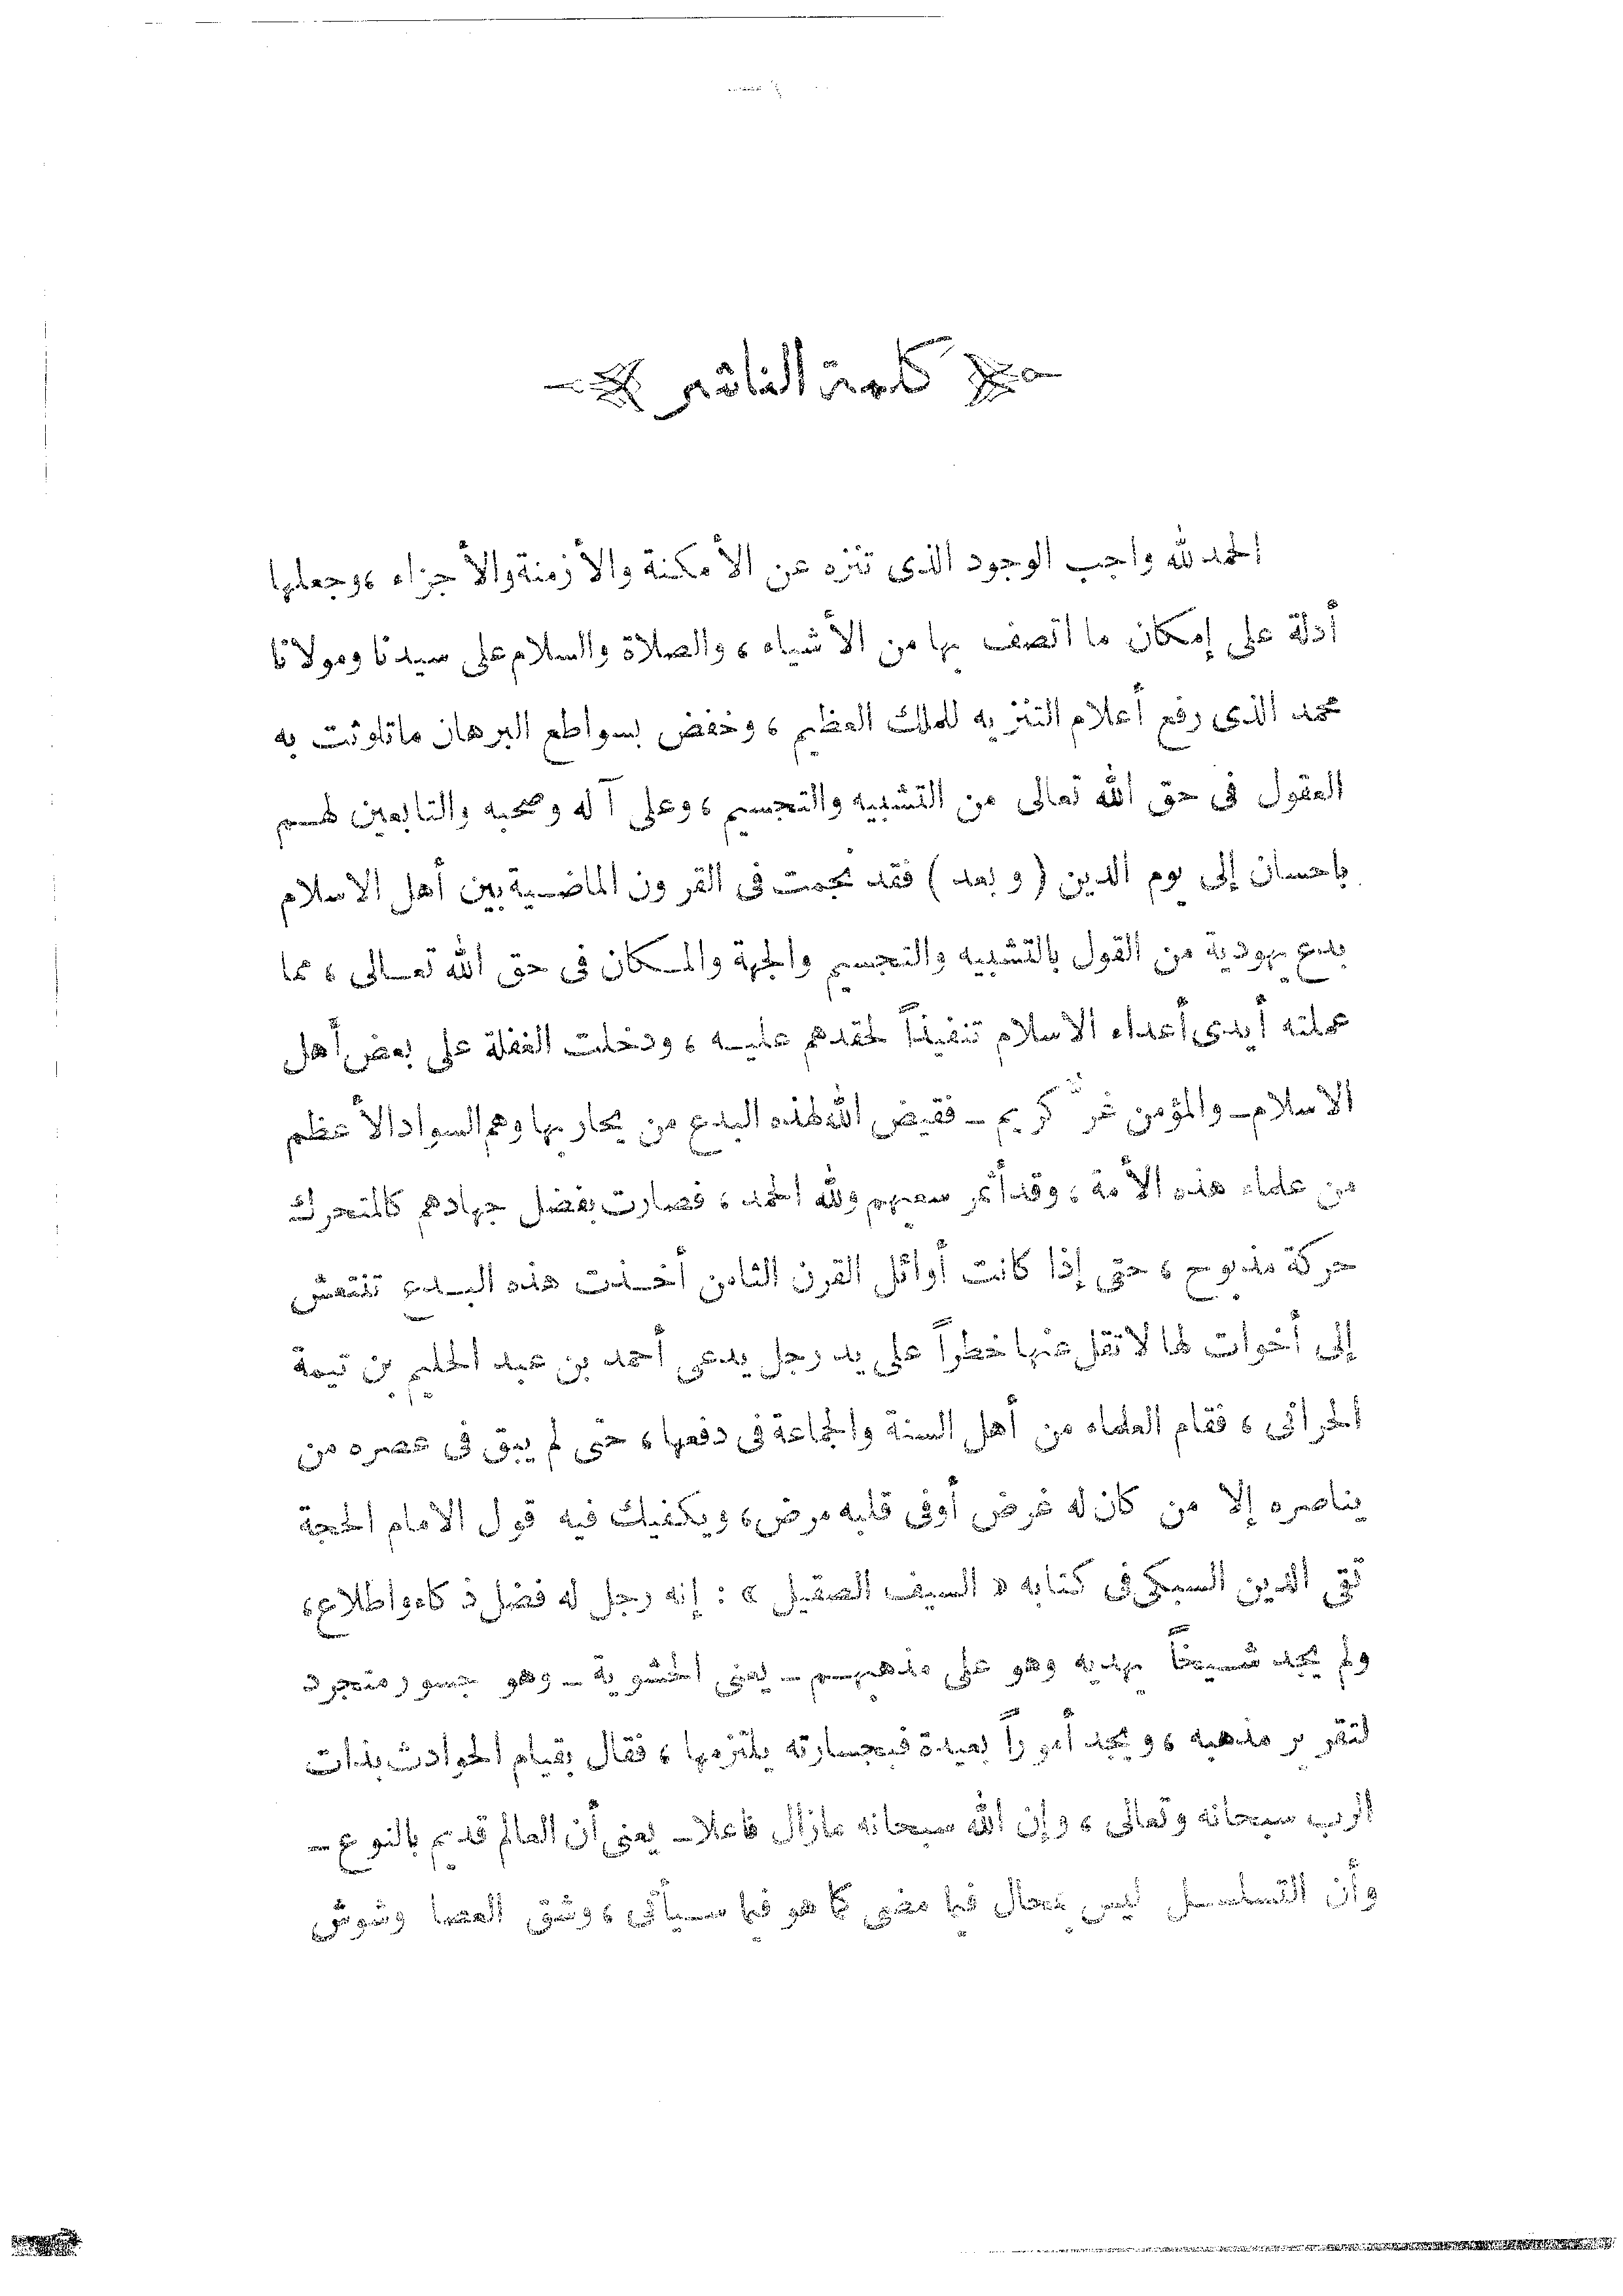 كلمة الناشر
الحمد لله واجب الوجود الذى تنزه عن الأمكنة والأزمنة والأجزاء ، وجعلها
أدلة على إمكان ما اتصف بها من الأشياء ، والصلاة والسلام على سيدنا ومولانا
محمد الذى رفع أعلام التنزيه للملك العظيم ، وخفض بسواطع البرهان ماتلوثت به
العقول فى حق الله تعالى من التشبيه والتجسيم ، وعلى آله وصحبه والتابعين لهم
باحسان إلى يوم الدين ( وبعد ) فقد نجمت فى القرون الماضية بين أهل الاسلام
بدع يهودية من القول بالتشبيه والتجسيم والجهة والمكان فى حق الله تعالى ، مما
عملته أيدى أعداء الاسلام تنفيذاً لحقدهم عليه ، ودخلت الغفلة على بعض أهل
الاسلام ـ والمؤمن غرّ كريم ـ فقيض الله لهذه البدع من يحاربها وهم السواد الأعظم
من علماء هذه الأمة ، وقد أثمر سعيهم ولله الحمد ، فصارت بفضل جهادهم كالمتحرك
حركة مذبوح ، حتى إذا كانت أوائل القرن الثامن أخذت هذه البدع تنتعش
إلى أخوات لها لاتقل عنها خطراً على يد رجل يدعى أحمد بن عبد الحليم بن تيمة
الحرانى ، فقام العلماء من أهل السنة والجماعة فى دفعها ، حتى لم يبق فى عصره من
يناصره إلا من كان له غرض أوفى قلبه مرض ، ويكفيك فيه قول الامام الحجة
تقى الدين السبكى فى كتابه « السيف الصقيل » : إنه رجل له فضل ذكاء واطلاع ،
ولم يجد شيخاً يهديه وهو على مذهبهم ـ يعنى الحشوية ـ وهو جسور متجرد
لتقرير مذهبه ، ويجد أموراً بعيدة فبجسارته يلتزمها ، فقال بقيام الحوادث بذات
الرب سبحانه وتعالى ، وإن الله سبحانه مازال فاعلا ـ يعنى أن العالم قديم بالنوع ـ
وأن التسلسل ليس بمحال فيما مضى كما هو فيما سيأتى ، وشق العصا وشوش